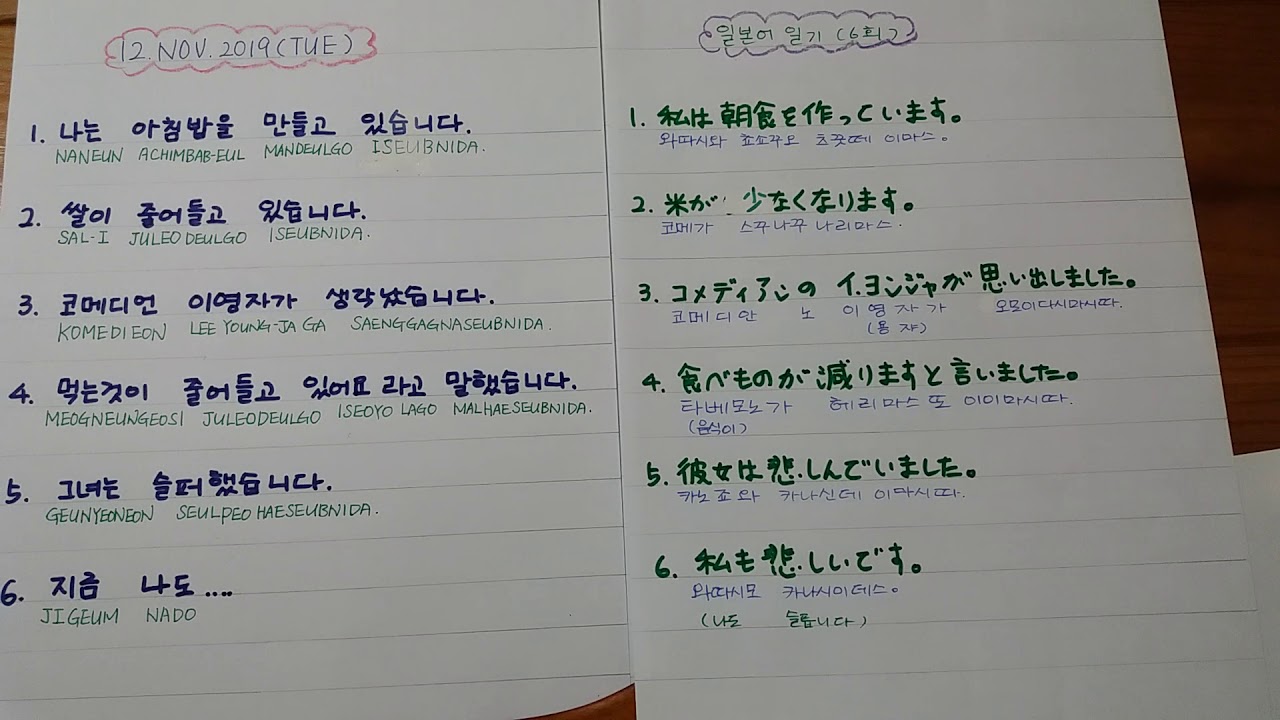 12. NOV. 2019 (TUE)
1. 나는 아침밥을 만들고 있습니다.
NANEUN ACHIMBAB-EUL MANDEULGO ISEUBNIDA.
2. 쌀이 줄어들고 있습니다.
SAL-I JULEODEULGO ISEUBNIDA.
3. 코메디언 이영자가 생각났습니다.
KOMEDIEON LEE YOUNG-JA GA SAENGGAGNASEUBNIDA.
4. 먹는것이 줄어들고 있어요 라고 말했습니다.
MEOGNEUNGEOSI JULEODEULGO ISEOYO LAGO MALHAESEUBNIDA.
5. 그녀는 슬퍼했습니다.
GEUNYEONEON SEULPEOHAESEUBNIDA.
6. 지금 나도 ....
JIGEUM NADO
일본어 일기 (6회)
1. 私は朝食を作っています。
와따시와 쵸쇼꾸오 츠꿋떼 이마스。
2. 米が 少なくなります。
코메가 스꾸나꾸 나리마스.
3. コメディアンの イ.ヨンジャが 思い出しました。
코메디안 노 이영자가 오모이다시마시따.
(용 쟈)
4. 食べものが減りますと言いました。
타베모노가 헤리마스 또 이이마시따.
(음식이)
5. 彼女は悲しんでいました。
카노죠와 카나신데 이마시따.
6. 私も悲しいです。
와따시모 카나시이데스。
(나도 슬픕니다)